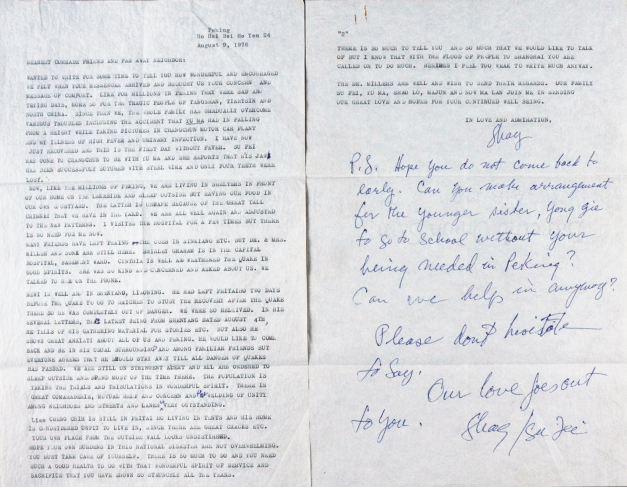 Peking
Ho Hai Bei Ya Yen 24
August 9, 1976
DEAREST COMRADE FRIEND AND FAR AWAY NEIGHBOR:
WANTED TO WRITE FOR SOME TIME TO TELL YOU HOW WONDERFUL AND ENCOURAGED
WE FELT WHEN YOUR MESSENGER ARRIVED AND BROUGHT US YOUR CONCERN AND
MESSAGE OF COMFORT. LIKE FOR MILLIONS IN PEKING THAT WERE SAD AND
TRYING DAYS, MORE SO FOR THE TRAGIC PEOPLE OF TANGSHAN, TIENTSIN AND
NORTH CHINA. SINCE THAN WE, THE WHOLE FAMILY HAS GRADUALLY OVERCOME
VARIOUS TROUBLES INCLUDING THE ACCIDENT THAT YU MA HAD IN FALLING
FROM A HEIGHT WHILE TAKING PICTURES IN CHANGCHUN MOTOR CAR PLANT
AND MY ILLNESS OF HIGH FEVER AND URINARY INFECTION. I HAVE NOW
JUST RECOVERED AND THIS IS THE FIRST DAY WITHOUT FEVER. SU FEI
HAS GONE TO CHANGCHUN TO BE WITH YU MA AND SHE REPORTS THAT HIS JAW
HAS BEEN SUCCESSFULLY SUTURED WITH STEEL WIRE AND ONLY FOUR TEETH WERE
LOST.
NOW, LIKE THE MILLIONS OF PEKING, WE ARE LIVING IN SHELTERS IN FRONT
OF OUR HOME ON THE LAKESIDE AND SLEEP OUTSIDE BUT HAVING OUR FOOD IN
OUR OWN COURTYARD. THE LATTER IS UNSAFE BECAUSE OF THE GREAT TALL
CHIMNEY THAT WE HAVE IN THE YARD. WE ARE ALL WELL AGAIN AND ADJUSTED
TO THE NEW PATTERNS. I VISITED THE HOSPITAL FOR A FEW TIMES BUT THERE
IS NO NEED FOR ME NOW.
MANY FRIENDS HAVE LEFT PEKING FOR THE COES IN SINKIANG ETC. BUT DR. & MRS.
MILLER AND SOME ARE STILL HERE. SHIRLEY GRAHAM IS IN THE CAPITAL
HOSPITAL, BASEMENT WARD. CYNTHIA IS WELL AND WEATHERED THE QUAKE IN
GOOD SPIRITS. SHE WAS SO KIND AND CONCERNED AND ASKED ABOUT US. WE
TALKED TO HER ON THE PHONE.
REWI IS WELL AND IN SHENYANG, LIAONING. HE HAD LEFT PEITAIHO TWO DAYS
BEFORE THE QUAKE TO GO TO HAICHEN TO STUDY THE RECOVERY AFTER THE QUAKE
THERE SO HE WAS COMPLETELY OUT OF DANGER. WE WERE SO RELIEVED. IN HIS
SEVERAL LETTERS, THE LATEST BEING FROM SHENYANG DATED AUGUST 4TH,
HE TELLS OF HIS GATHERING MATERIAL FOR STORIES ETC. BUT ALSO HE
SHOWS GREAT ANXIETY ABOUT ALL OF US AND PEKING. HE WOULD LIKE TO COME
BACK AND BE IN HIS USUAL SURROUNDINGS AND AMONG FAMILIAR FRIENDS BUT
EVERYONE AGREES THAT HE SHOULD STAY AWAY TILL ALL DANGER OF QUAKES
HAS PASSED. WE ARE STILL ON STRINGENT ALERT AND ALL ARE ORDERED TO
SLEEP OUTSIDE AND SPEND MOST OF THE TIME THERE. THE POPULATION IS
TAKING THE TRIALS AND TRIBULATIONS IN WONDERFUL SPIRIT. THERE IS
GREAT COMRADESHIP, MUTUAL HELP AND CONCERN AND WELDING OF UNITY
AMONG NEIGHBORS AND STREETS AND LANES VERY OUTSTANDING.
CHENG CHIH IS STILL IN PEITAI HO LIVING IN TENTS AND HIS HOME
IS CONSIDERED UNFIT TO LIVE IN, SINCE THERE ARE GREAT CRACKS ETC.
YOUR OWN PLACE FROM THE OUTSIDE WALL LOOKS UNDISTURBED.
HOPE YOUR OWN BURDENS IN THIS NATIONAL DISASTER ARE NOT OVERWHELMING.
YOU MUST TAKE CARE OF YOURSELF. THERE IS SO MUCH TO DO AND YOU NEED
SUCH A GOOD HEALTH TO GO WITH THAT WONDERFUL SPIRIT OF SERVICE AND
SACRIFICE THAT YOU HAVE SHOWN SO STRENUOUSLY ALL THE YEARS.
"2"
THERE IS SO MUCH TO TELL YOU AND SO MUCH THAT WE WOULD LIKE TO TALK
OF BUT I KNOW THAT WITH THE FLOOD OF PEOPLE TO SHANGHAI YOU ARE
CALLED ON TO DO MUCH. BESIDES I FELL TOO WEAK TO WRITE MUCH ANYWAY.
THE DR. MILLERS ARE WELL AND WISH TO SEND THEIR REGARDS. OUR FAMILY
SU FEI, YU MA, SHAO LO, MAJUN AND NOW MA LAN JOIN ME IN SENDING
OUR GREAT LOVE AND HOPES FOR YOUR CONTINUED WELL BEING.
IN LOVE AND ADMIRATION,
Shag
P.S. Hope you do not come back to
early. Can you make arrangement
for the younger sister, Yong gie
to go to school without your
being needed in Peking?
Can we help in anyway?
Please dont hesitate
to say.
Our love goes out
to you.
Shag / Su Fei